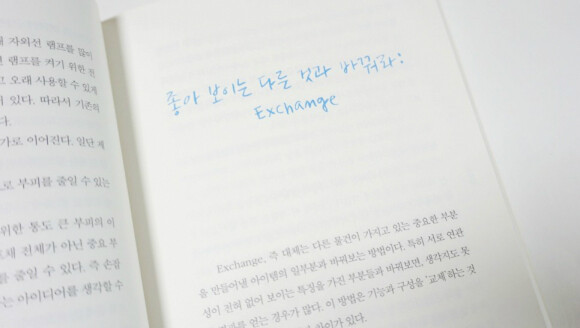 자외선 램프를 많이
램프를 켜기 위한 전
고 오래 사용할 수 있게
있다. 따라서 기존의
다.
가로 이어진다. 일단 제
로 부피를 줄일 수 있는
위한 통도 큰 부피의 이
전체가 아닌 중요 부
를 줄일 수 있다. 즉 손잡
는 아이디어를 생각할 수
좋아 보이는 다른 것과 바꿔라:
Exchange
Exchange, 즉 대체는 다른 물건이 가지고 있는 중요한 부분
을 만들어낼 아이템의 일부분과 바꿔보는 방법이다. 특히 서로 연관
성이 전혀 없어 보이는 특징을 가진 부분들과 바꿔보면, 생각지도 못
얻는 경우가 많다. 이 방법은 기능과 구성을 '교체'하는 것
차이가 있다.